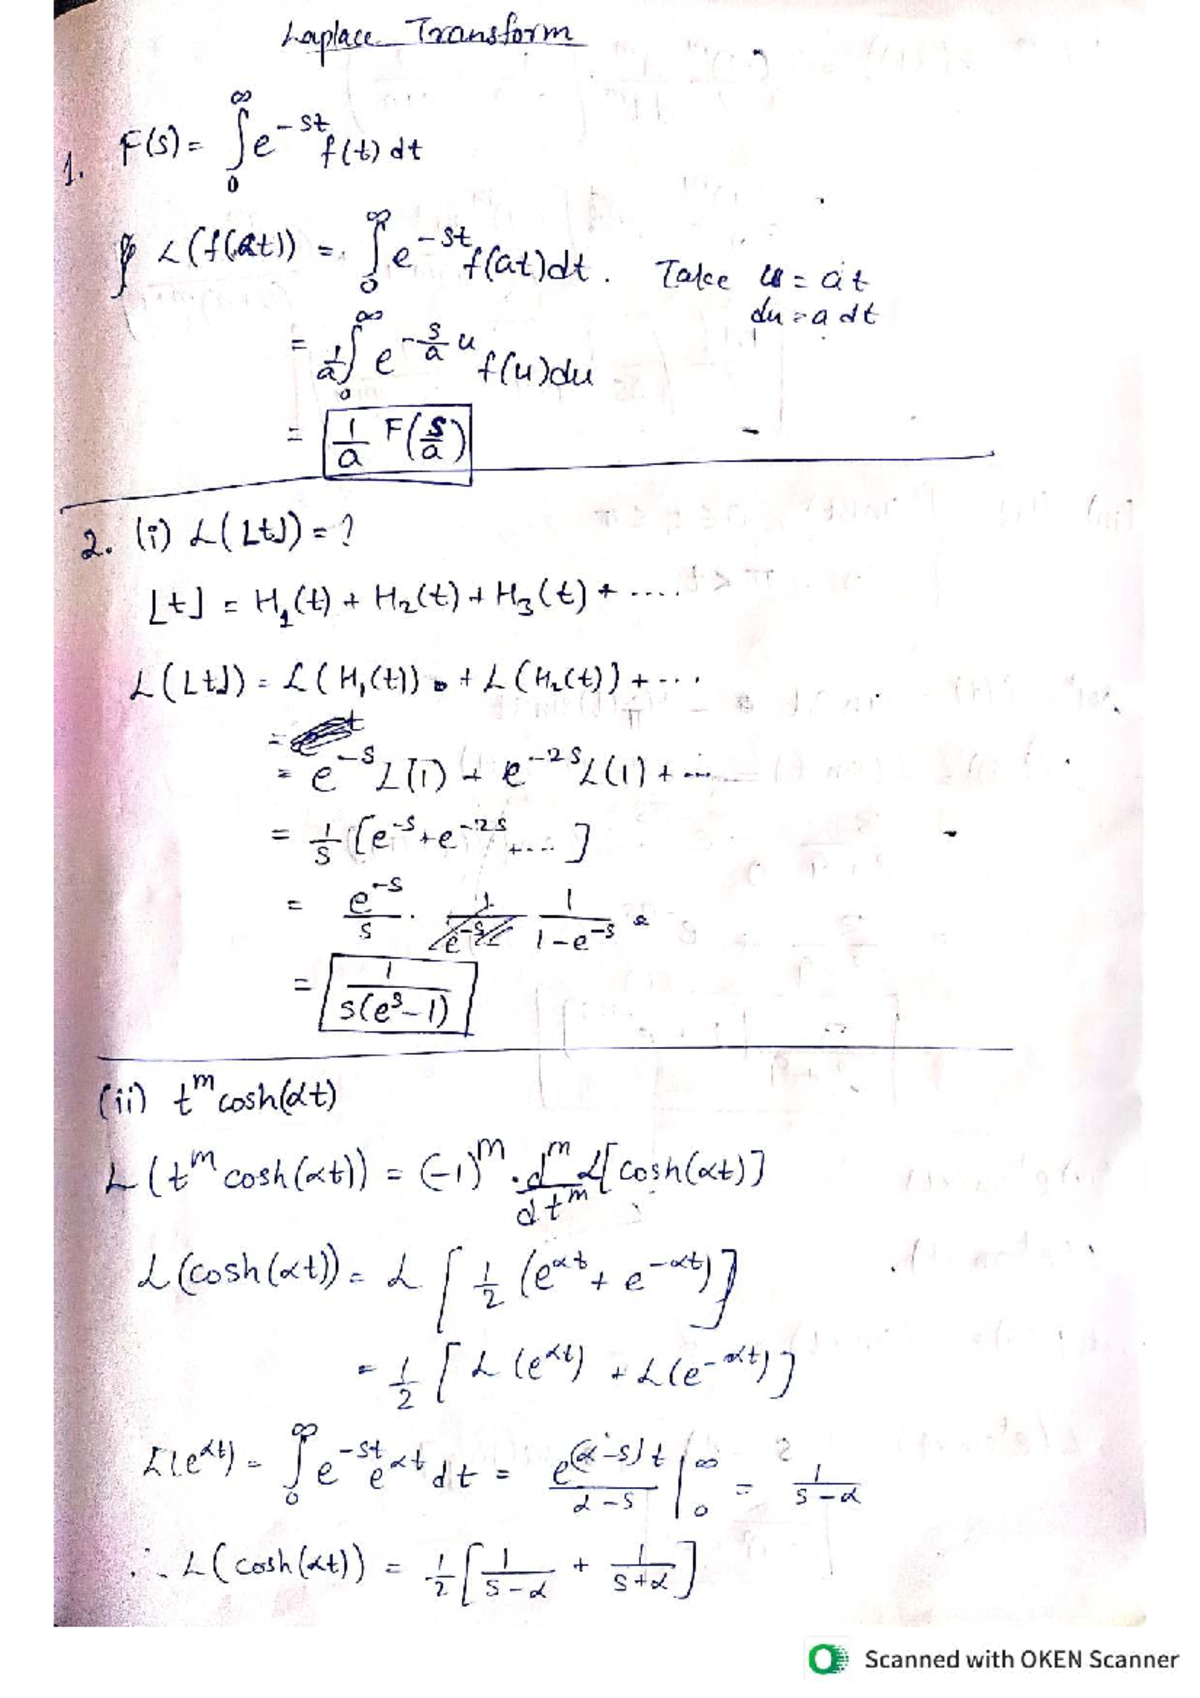 Laplace Transform
1. F(s) = ∫₀^∞ e^{-st} f(t) dt
L(f(at)) = ∫₀^∞ e^{-st} f(at)dt. Take u = at
du = a dt
= 1/a ∫₀^∞ e^{-s/a u} f(u)du
= 1/a F(s/a)
2. (i) L(⌊t⌋) = ?
⌊t⌋ = H₁(t) + H₂(t) + H₃(t) + .....
L(⌊t⌋) = L(H₁(t)) + L(H₂(t)) + ....
= e^{-s} L(1) + e^{-2s} L(1) + ....
= 1/s [e^{-s} + e^{-2s} + ....]
= e^{-s}/s · 1/(1-e^{-s})
= 1/(s(e^s-1))
(ii) t^m cosh(αt)
L(t^m cosh(αt)) = (-1)^m . d^m/dt^m L[cosh(αt)]
L(cosh(αt)) = L[1/2 (e^{αt} + e^{-αt})]
= 1/2 [L(e^{αt}) + L(e^{-αt})]
L(e^{αt}) = ∫₀^∞ e^{-st} e^{αt} dt = e^{(α-s)t}/(α-s) |₀^∞ = 1/(s-α)
∴ L(cosh(αt)) = 1/2 [1/(s-α) + 1/(s+α)]
Scanned with OKEN Scanner